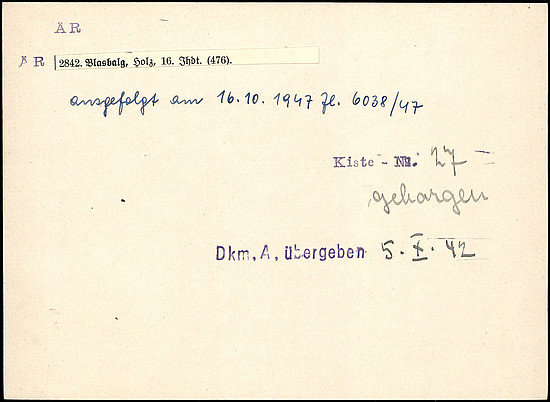 ÄR
ÄR 2842. Blasbalg, Holz, 16. Jhdt. (476).
ausgefolgt am 16.10.1947 Zl. 6038/47
Kiste - Nr. 27
geborgen
Dkm. A. übergeben 5. X. 42